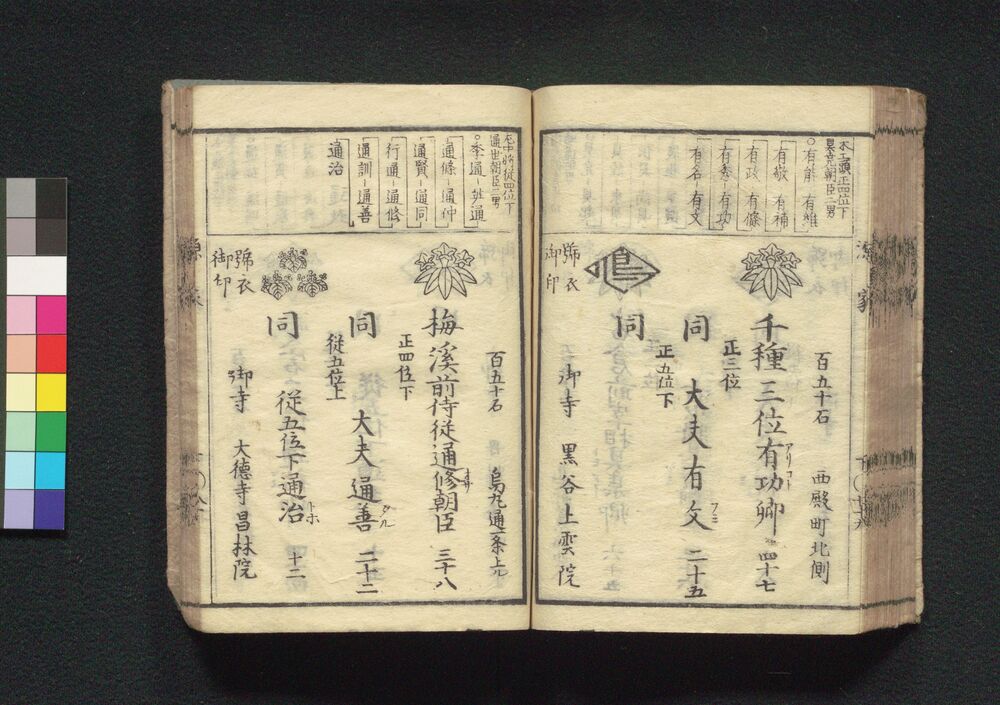 正四位下
○有能－有維
有敬－有補
有政－有條
有秀－有功
有名－有文
百五十石　西殿町北側
千種三位有功卿　四十七
アリコト
正三位
同　大夫有文　二十五
フミ
正五位下
同
御寺　黒谷上雲院
號衣
御印
左中將從四位下
通世朝臣二男
○季通－英通
通條－通仲
通賢－通同
行通－通修
通訓－通善
通治
百五十石　烏丸通一条上ル
梅溪前侍従通修朝臣　三十八
正四位下
同　大夫通善　二十二
タル
從五位上
同　従五位下通治　十二
御寺　大德寺昌林院
號衣
御印
源家